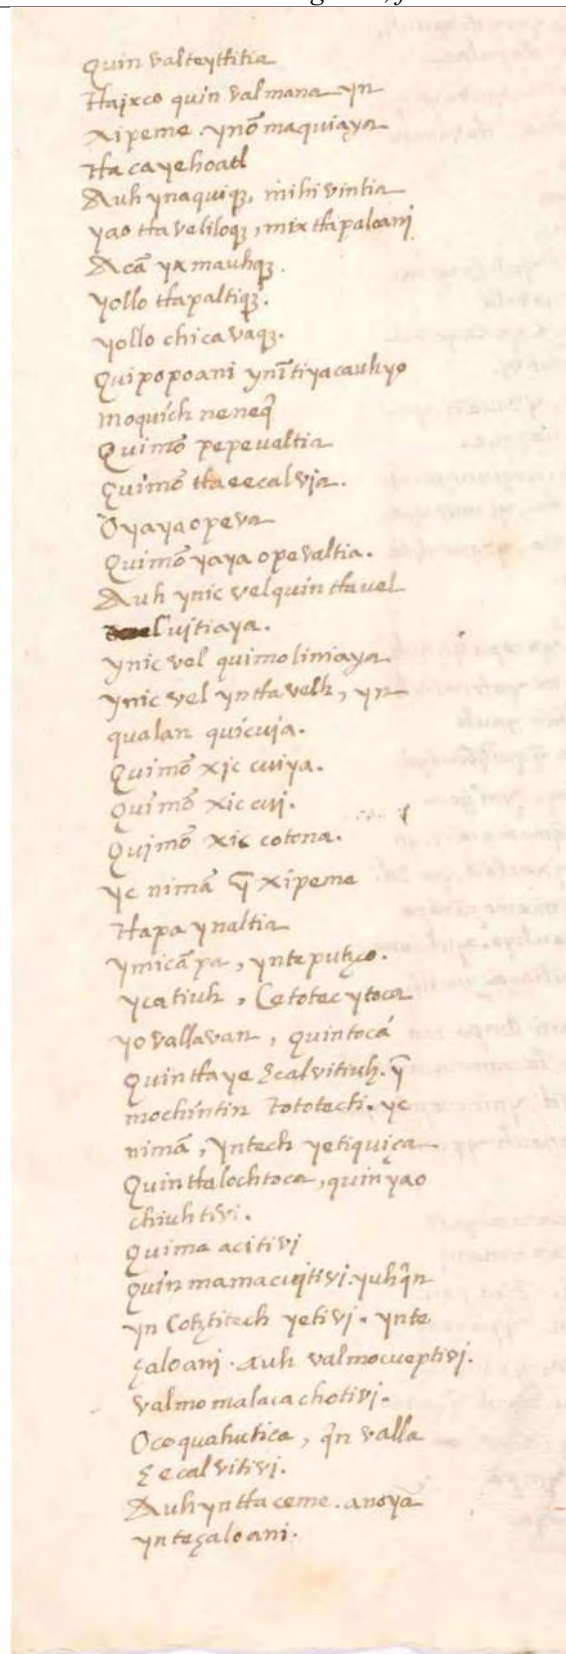 Quin valteyttitia
tlajxco quin valmana yn
xipeme. ynō maquiaya
tlacayehoatl
Auh ynaquiqz, mihivintia
yao tlaveliloqz, mixtlapaloani
Acā yxmauhqz.
yollo tlapaltiqz.
yollo chicavaqz.
Quipopoani ynītiyacauhyo
moquichneneq̄
Quimō pepevaltia
Quimō tlaeecalvia.
Oyayaopeva
Quimō yaya opevaltia.
Auh ynic vel quin tlavel
cuitiaya.
ynic vel quimoliniaya
ynic vel yntlavelh, yn
qualan quicuia.
Quimō xic cuiya.
Quimō xic cui.
Quimō xic cotona.
yc nimā ȳ xipeme
tlapa ynaltia
ymicāpa, ynteputzco.
ycatiuh, Cetotec ytoca
yovallavan, quintocá
Quintlaye Ecalvitiuh. ȳ
mochintin Tototecti. yc
nimā, yntech yetiquiça
Quintlalochtoca, quinyao
chiuhtivi.
Quima acitivi
Quinmamacuitivi. yuhqn
yn Cotztitech yetivi. ynte
çaloani. auh valmocueptivi.
valmomalacachotivi.
Ocoquahutica, qn valla
Eecalvitivi.
Auh yntlaceme. anoya
ynteçaloani.